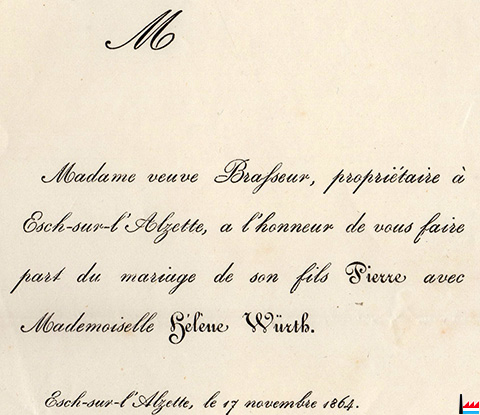 M
Madame veuve Brasseur, propriétaire à
Esch-sur-l'Alzette, a l'honneur de vous faire
part du mariage de son fils Pierre avec
Mademoiselle Hélène Würth.
Esch-sur-l'Alzette, le 17 novembre 1864.